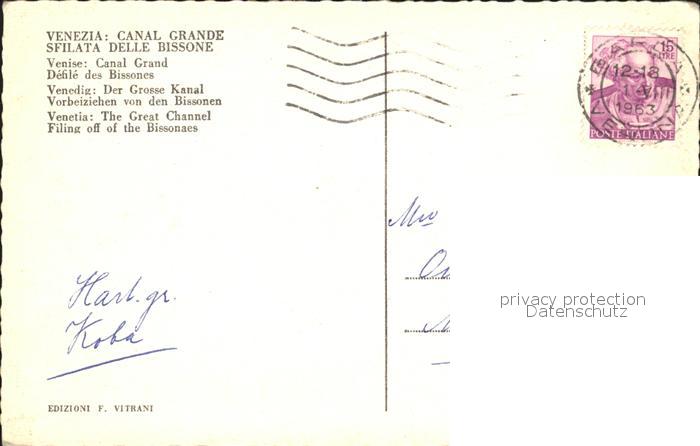 VENEZIA: CANAL GRANDE
SFILATA DELLE BISSONE
Venise: Canal Grand
Défilé des Bissones
Venedig: Der Grosse Kanal
Vorbeiziehen von den Bissonen
Venetia: The Great Channel
Filing off of the Bissonaes
15
LIRE
12-18
1963
POSTE ITALIANE
privacy protection
Datenschutz
Hart. gr.
Koba
EDIZIONI F. VITRANI